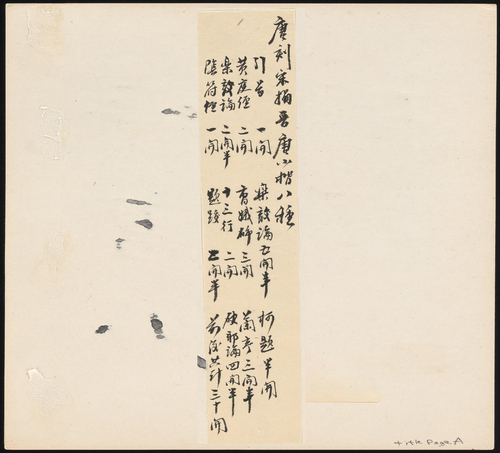 唐刻宋搨晋唐小楷八種
引首 一開 樂毅論 開半 柯題 半開
黄庭經 二開 曹娥碑 三開 蘭亭 三開半
樂毅論 二開半 十三行 二開 破邪論 四開半
陰符經 一開 題跋 開半 前後共計三十開
title page A